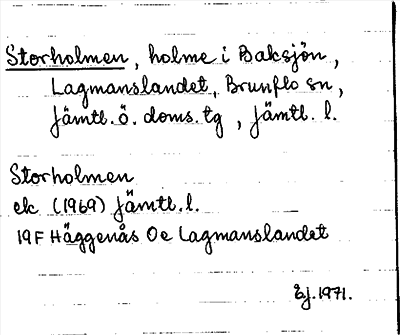 Storholmen, holme i Baksjön,
Lagmanslandet, Brunflo sn,
Jämtl. ö. doms. tg, Jämtl. l.
Storholmen
ek (1969) Jämtl. l.
19F Häggenås Oe Lagmanslandet
Ej. 1971.